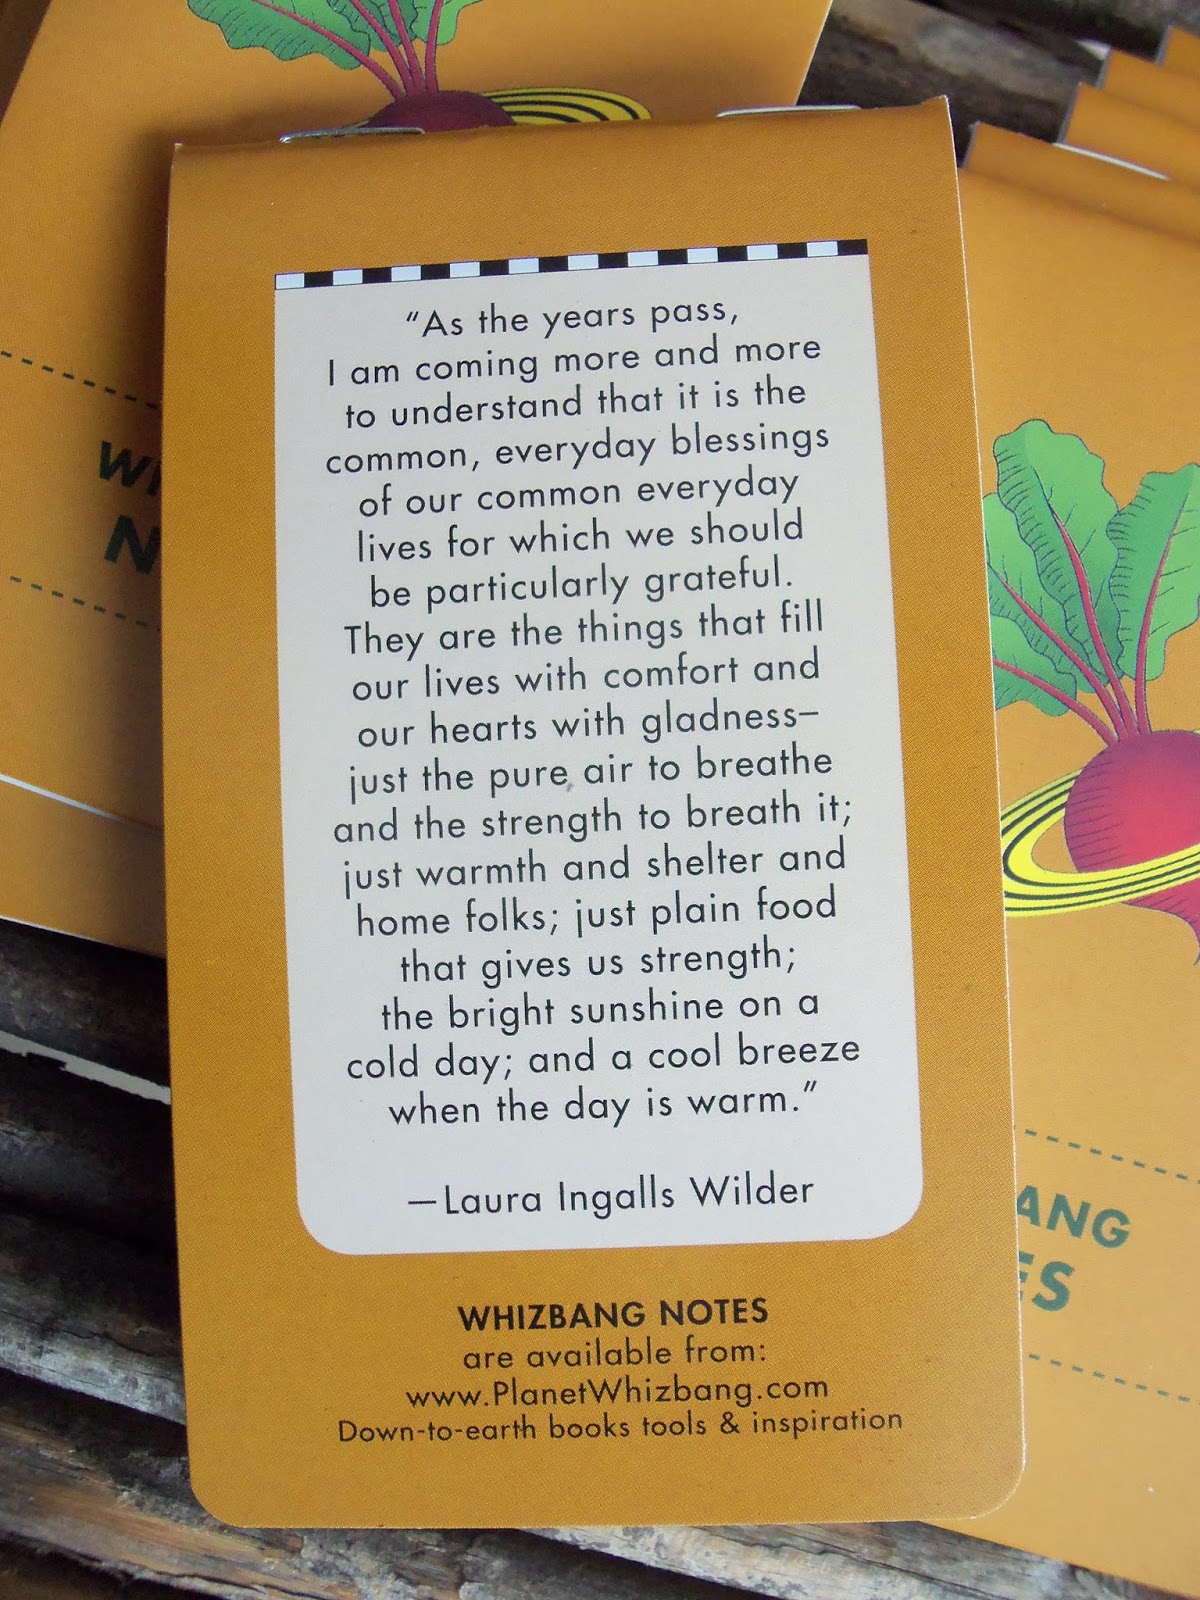 “As the years pass,
I am coming more and more
to understand that it is the
common, everyday blessings
of our common everyday
lives for which we should
be particularly grateful.
They are the things that fill
our lives with comfort and
our hearts with gladness—
just the pure air to breathe
and the strength to breath it;
just warmth and shelter and
home folks; just plain food
that gives us strength;
the bright sunshine on a
cold day; and a cool breeze
when the day is warm.”
—Laura Ingalls Wilder
WHIZBANG NOTES
are available from:
www.PlanetWhizbang.com
Down-to-earth books tools & inspiration
WH
N
ANG
ES